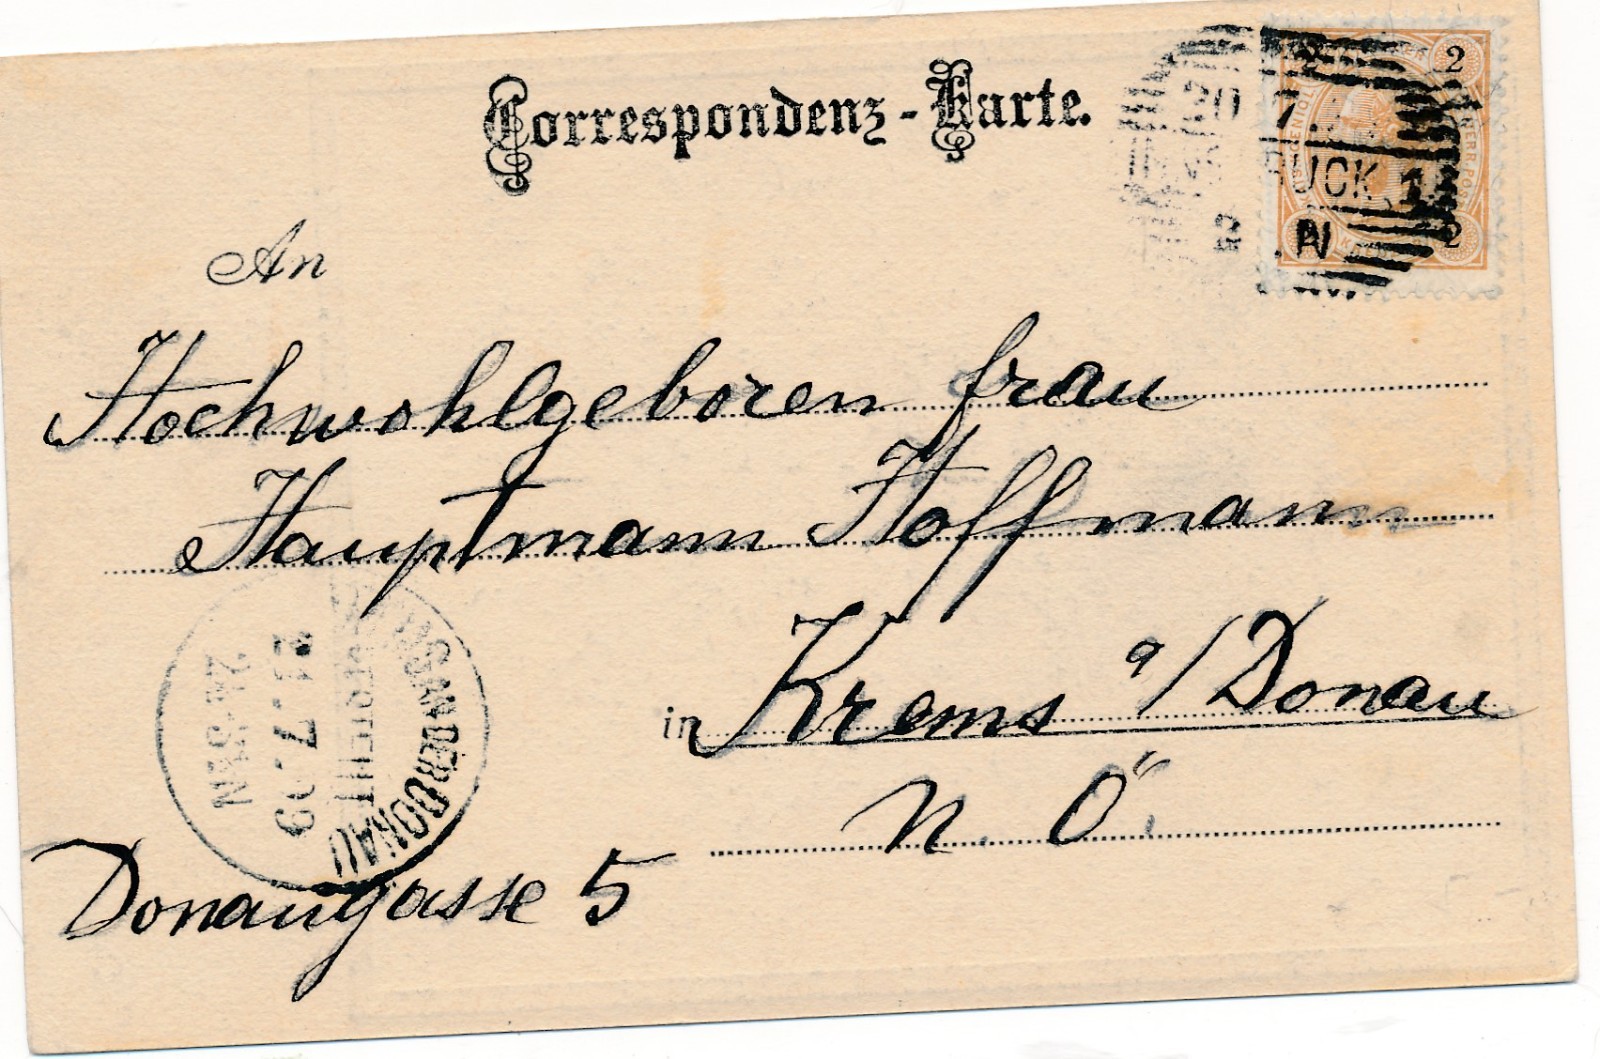 Correspondenz-Karte.
2 2
20 7
UCK 1
N 2
An
Hochwohlgeboren Frau
Hauptmann Hoffmann
in Krems a/Donau
N. Ö.
AN DER DONAU
BESTELLT
21.7.99
N
Donaugasse 5